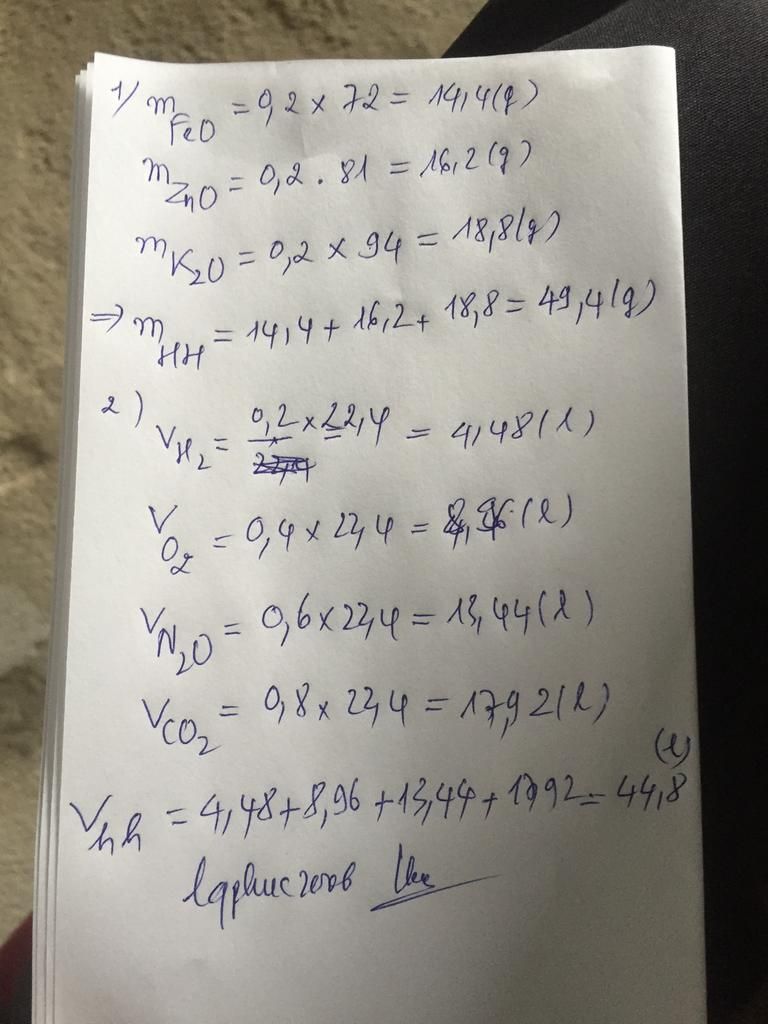 1) mFeO = 0,2 x 72 = 14,4(g)
mZnO = 0,2 . 81 = 16,2(g)
mK2O = 0,2 x 94 = 18,8(g)
=> mHH = 14,4 + 16,2 + 18,8 = 49,4(g)
2) VH2 = 0,2 x 22,4 = 4,48(l)
VO2 = 0,4 x 22,4 = 8,96(l)
VN2O = 0,6 x 22,4 = 13,44(l)
VCO2 = 0,8 x 22,4 = 17,92(l)
Vhh = 4,48 + 8,96 + 13,44 + 17,92 = 44,8 (l)